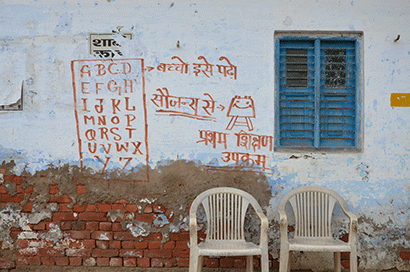 A B C D
E F G H
I J K L
M N O P
Q R S T
U V W X
Y Z
बच्चो इसे पढो
सौजन्य से
प्रथम शिक्षण
उपक्रम